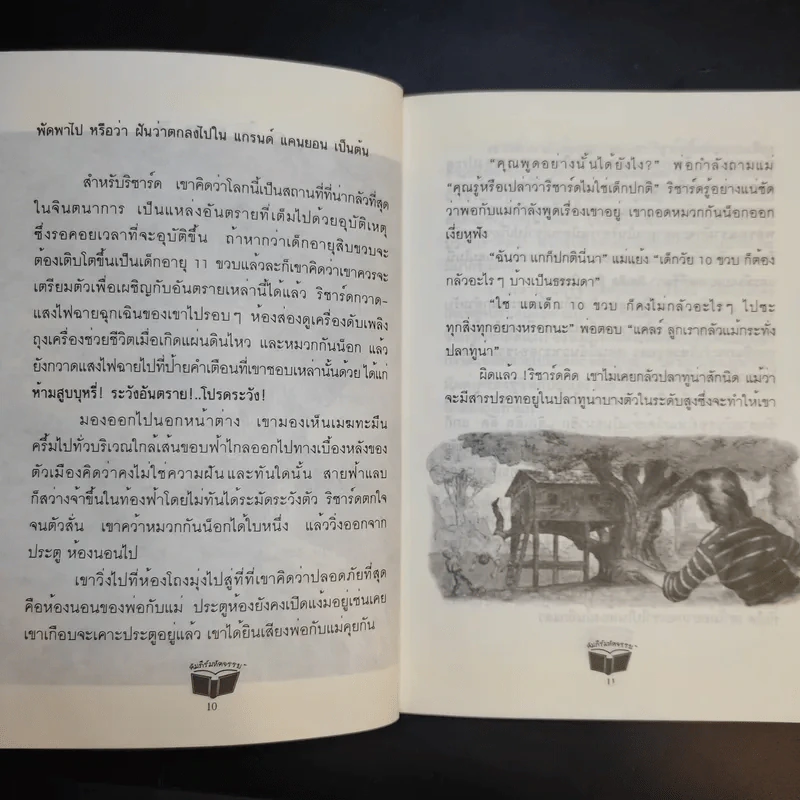 พัดพาไป หรือว่า ฝันว่าตกลงไปใน แกรนด์ แคนยอน เป็นต้น
สำหรับริชาร์ด เขาคิดว่าโลกนี้เป็นสถานที่ที่น่ากลัวที่สุด
ในจินตนาการ เป็นแหล่งอันตรายที่เต็มไปด้วยอุบัติเหตุ
ซึ่งรอคอยเวลาที่จะอุบัติขึ้น ถ้าหากว่าเด็กอายุสิบขวบจะ
ต้องเติบโตขึ้นเป็นเด็กอายุ 11 ขวบแล้วละก็เขาคิดว่าเขาควรจะ
เตรียมตัวเพื่อเผชิญกับอันตรายเหล่านี้ได้แล้ว ริชาร์ดกวาด-
แสงไฟฉายฉุกเฉินของเขาไปรอบๆ ห้องส่องดูเครื่องดับเพลิง
ถุงเครื่องช่วยชีวิตเมื่อเกิดแผ่นดินไหว และหมวกกันน็อก แล้ว
ยังกวาดแสงไฟฉายไปที่ป้ายคำเตือนที่เขาชอบเหล่านั้นด้วย ได้แก่
ห้ามสูบบุหรี่! ระวังอันตราย!..โปรดระวัง!
มองออกไปนอกหน้าต่าง เขามองเห็นเมฆทะมึน
ครึ้มไปทั่วบริเวณใกล้เส้นขอบฟ้าไกลออกไปทางเบื้องหลังของ
ตัวเมืองคิดว่าคงไม่ใช่ความฝัน และทันใดนั้น สายฟ้าแลบ
ก็สว่างจ้าขึ้นในท้องฟ้าโดยไม่ทันได้ระมัดระวังตัว ริชาร์ดตกใจ
จนตัวสั่น เขาคว้าหมวกกันน็อกได้ใบหนึ่ง แล้ววิ่งออกจาก
ประตู ห้องนอนไป
เขาวิ่งไปที่ห้องโถงมุ่งไปสู่ที่ที่เขาคิดว่าปลอดภัยที่สุด
คือห้องนอนของพ่อกับแม่ ประตูห้องยังคงเปิดแง้มอยู่เช่นเคย
เขาเกือบจะเคาะประตูอยู่แล้ว เขาได้ยินเสียงพ่อกับแม่คุยกัน
10
“คุณพูดอย่างนั้นได้ยังไง?” พ่อกำลังถามแม่
“คุณรู้หรือเปล่าว่าริชาร์ดไม่ใช่เด็กปกติ” ริชาร์ดรู้อย่างแน่ชัด
ว่าพ่อกับแม่กำลังพูดเรื่องเขาอยู่ เขาถอดหมวกกันน็อกออก
เงี่ยหูฟัง
“ฉันว่า แกก็ปกตินี่นา” แม่แย้ง “เด็กวัย 10 ขวบ ก็ต้อง
กลัวอะไรๆ บ้างเป็นธรรมดา”
“ใช่ แต่เด็ก 10 ขวบ ก็คงไม่กลัวอะไรๆ ไปซะ
ทุกสิ่งทุกอย่างหรอกนะ” พ่อตอบ “แคลร์ ลูกเรากลัวแม้กระทั่ง
ปลาทูน่า”
ผิดแล้ว !ริชาร์ดคิด เขาไม่เคยกลัวปลาทูน่าสักนิด แม้ว่า
จะมีสารปรอทอยู่ในปลาทูน่าบางตัวในระดับสูงซึ่งจะทำให้เขา